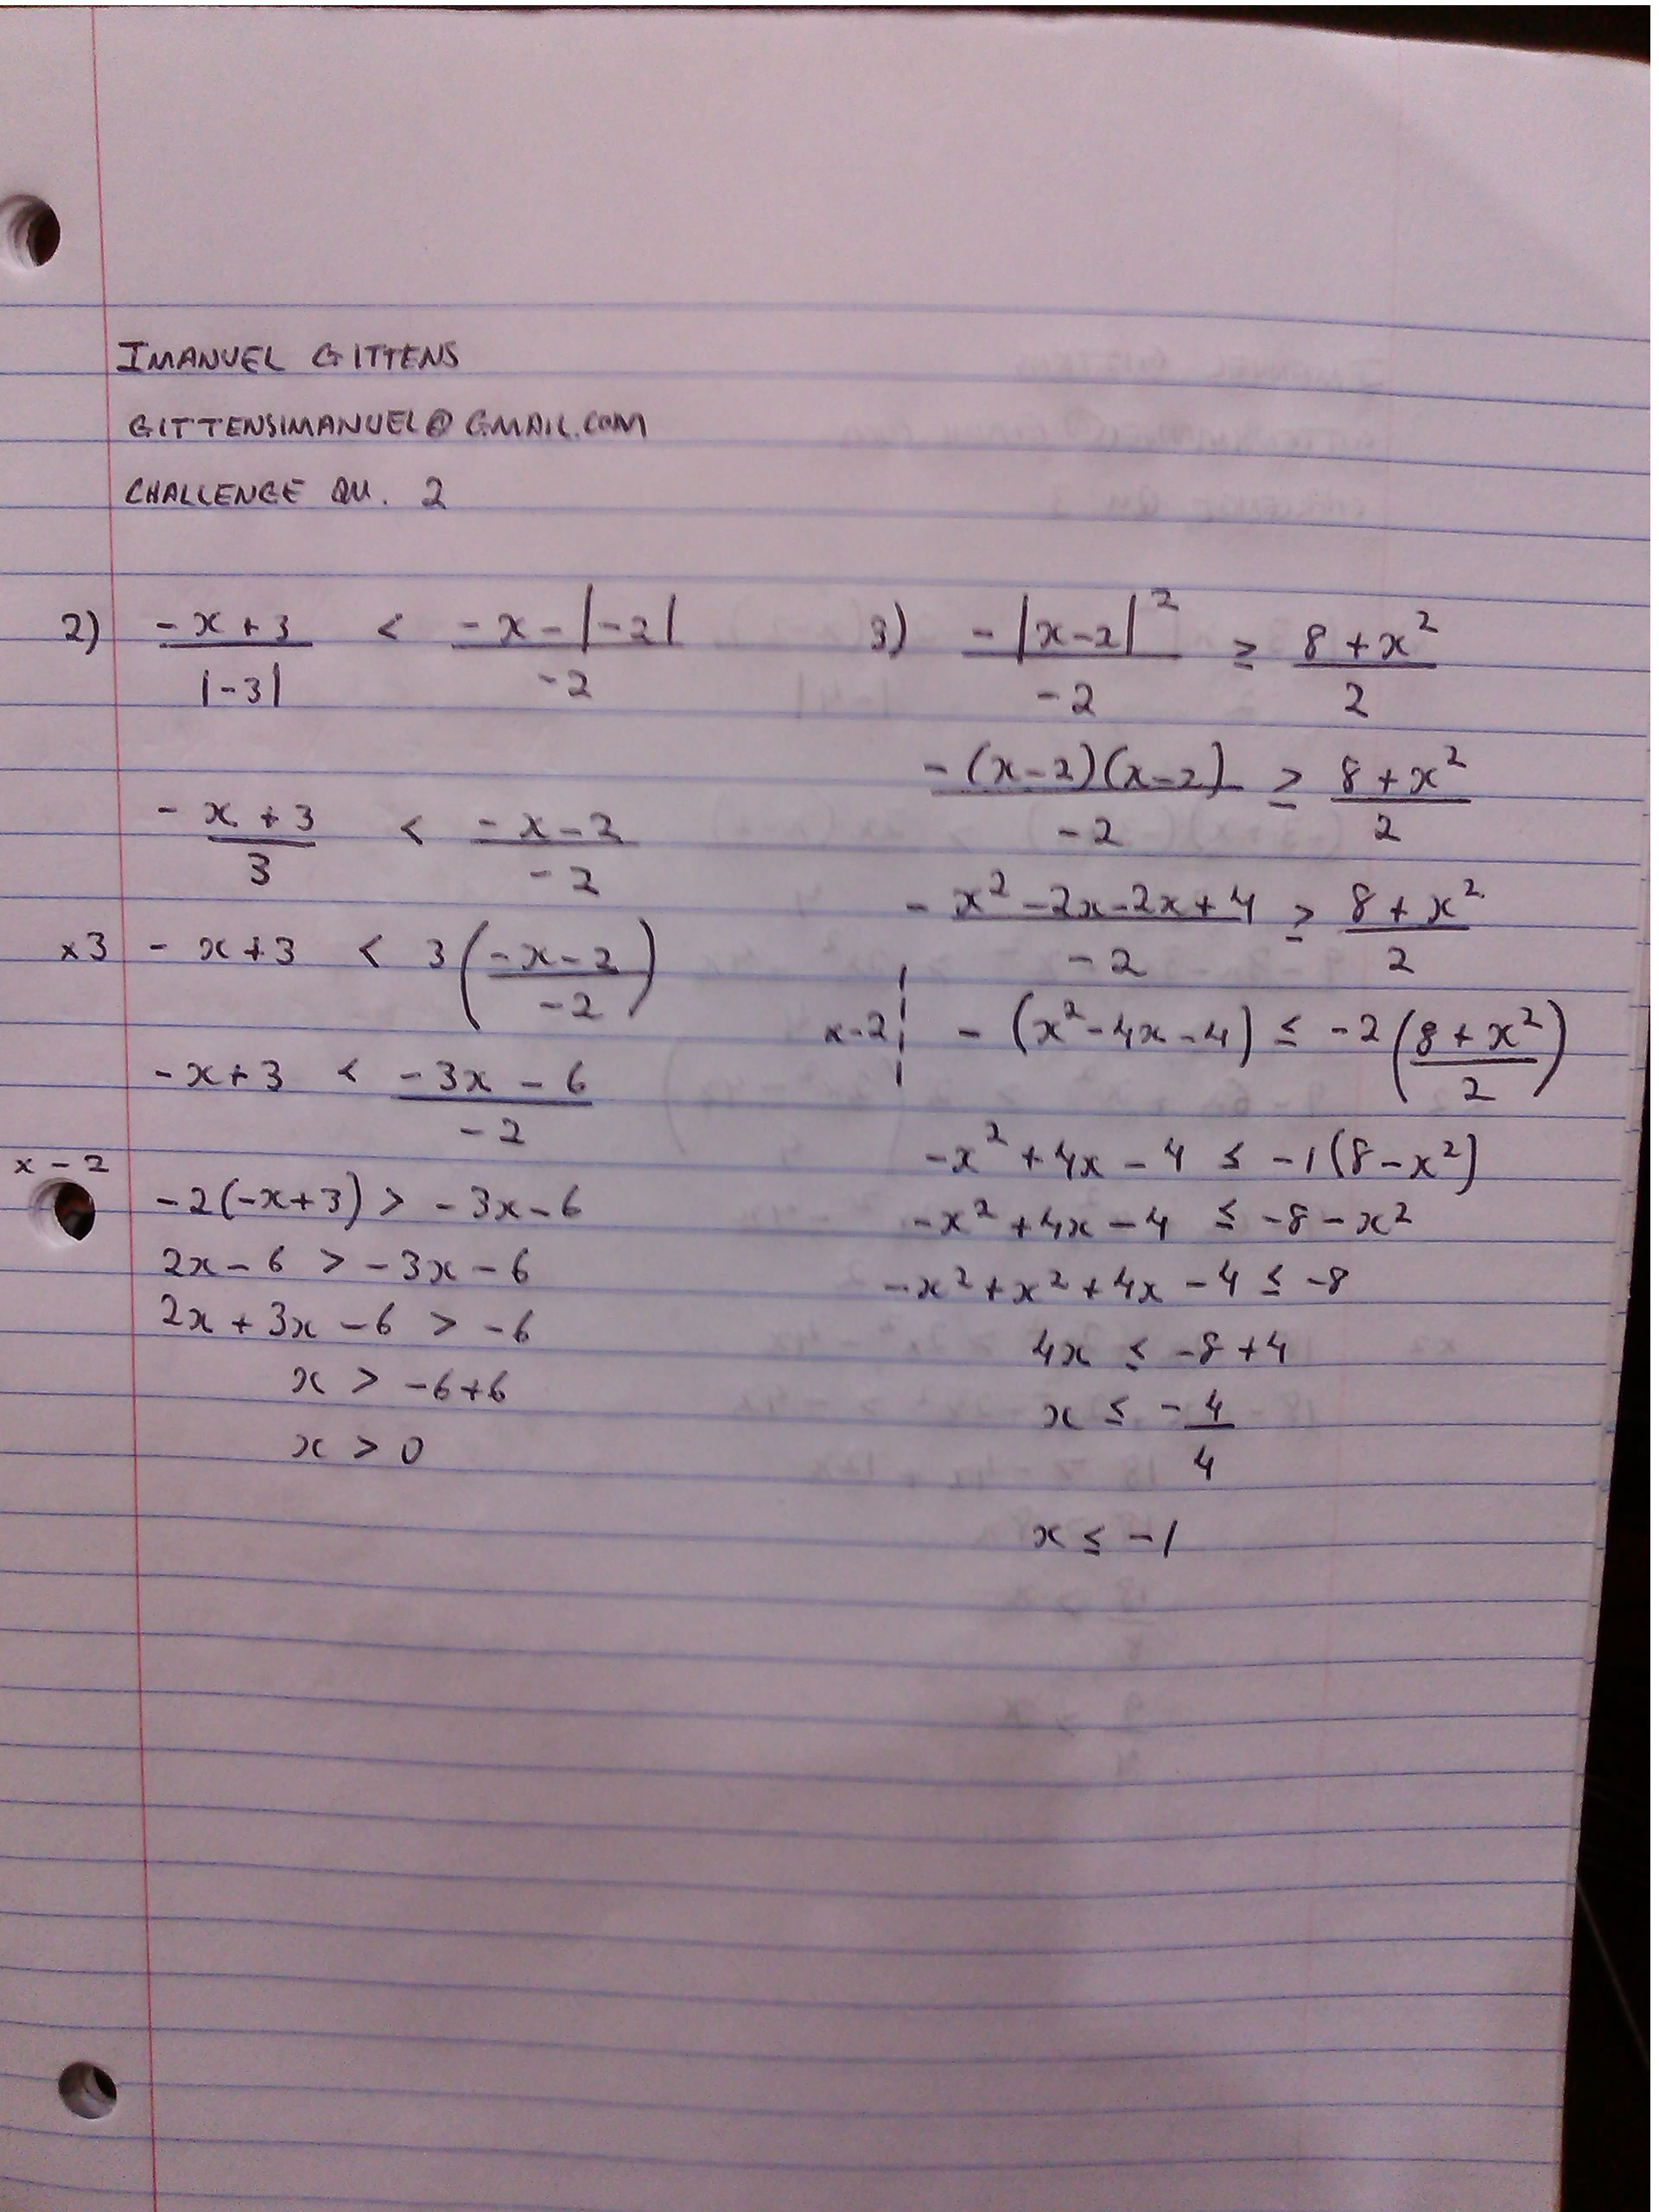 IMANUEL GITTENS
GITTENSIMANUEL@GMAIL.COM
CHALLENGE QU. 2
2) (-x+3)/|-3| < (-x-|-2|)/-2
-(x+3)/3 < (-x-2)/-2
×3 -x+3 < 3((-x-2)/-2)
-x+3 < (-3x-6)/-2
×-2
-2(-x+3) > -3x-6
2x-6 > -3x-6
2x+3x-6 > -6
x > -6+6
x > 0
3) -|x-2|²/-2 ≥ (8+x²)/2
-(x-2)(x-2)/-2 ≥ (8+x²)/2
-(x²-2x-2x+4)/-2 ≥ (8+x²)/2
×-2 -(x²-4x-4) ≤ -2((8+x²)/2)
-x²+4x-4 ≤ -1(8-x²)
-x²+4x-4 ≤ -8-x²
-x²+x²+4x-4 ≤ -8
4x ≤ -8+4
x ≤ -4/4
x ≤ -1